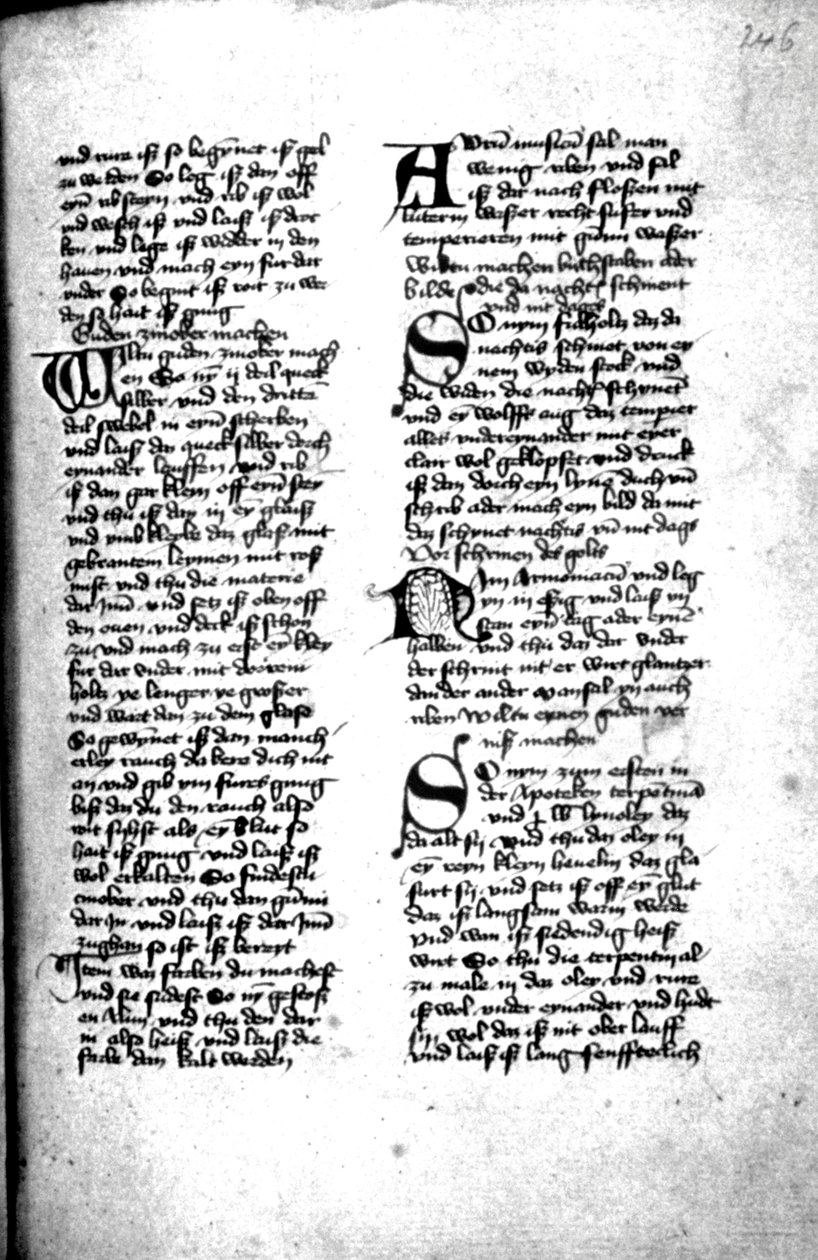 246
vnd rure iß so begÿnet iß gel
zu werden So leg iß dan off
eyn̄ ribsteyn vnd rib iß wol
vnd wesch iß vnd laiß iß droc
ken vnd lege iß widder in den
hauen vnd mach eyn fur dar
vnder So begint iß roit zu wer
den so hait iß gnug
Guden zinober machen
Wiltu guden zinober mach
en So nÿ ij deil queck
silber vnd den dritten̄
deil swebel in eyn̄ scherben
vnd laiß daz queck silber dorch
eynander lauffen vnd rib
iß dan gar kleyn off eyn̄ stey
vnd thu iß dan in eÿ glaiß
vnd vmb kleybe daz glaß mit
gebrantem leymen mit roß
mist vnd thu die materie
dar Inn̄ vnd setz iß oben off
den ouen vnd deck iß schon
zu vnd mach zu erst eÿ kley
fur dar vnder mit dorrem
holtz ye lenger ye großer
vnd wart dan zu dem glase
So gewÿnet iß dan manch
erley rauch da kere dich nit
an vnd gib ym fures gnug
biß daz du den rauch also
roit syhst als eÿ blut so
hait iß gnug vnd laiß iß
wol erkalten So findestu
cinober vnd thu dan gūmi
dar In vnd laiß iß dar Inn̄
zughan so ist iß bereyt
Item waz farben du machest
vnd sie sudest So nÿ gestoß
en Alun vnd thu den dar
in also heiß vnd laiß die
farbe dan kalt werden
Awrū musicū sal man
wenig riben vnd sal
iß dar nach floßen mit
luterm waßer recht suser vnd
temperieren mit gūmi waßer
Wiltu machen buchstaben ader
bilde die da nachtz schinent
vnd nit dages
So nym fulholtz daz da
nachtis schinet von ey
nem wyden stock vnd
die widen die nachtz schynet
vnd eÿ wolffs aug daz temperer
alles vndereynander mit eyer
clair wol geklopfet vnd druck
iß dan dorch eyn lynē duch vn̄
schrib ader mach eyn bild da mit
daz schynet nachtis vn̄ nit dags
Vor schrinnen des golts
Nym Armoniacū vnd leg
yn in eßig vnd laiß yn
stan eyn̄ tag ader eynē
halben vnd thu daz dar vnder
der schrint nit er wirt glantzer
dan der ander man sal yn auch
riben Wiltu eynen guden ver
niß machen
So nym zum ersten in
der Apoteken terpentinā
vnd j lb lynoley daz
da alt sy vnd thu daz oley in
eÿ reyn kleyn hevelin daz gla
surt sy vnd setz iß off eÿ glut
daz iß langsam warm werde
vnd wan iß siedendig heiß
wirt So thu die terpentin al
zu male in daz oley vnd rure
iß wol vnder eynander vnd hudt
sin wol daz iß nit ober lauff
vnd laiß iß lang senfftecklich